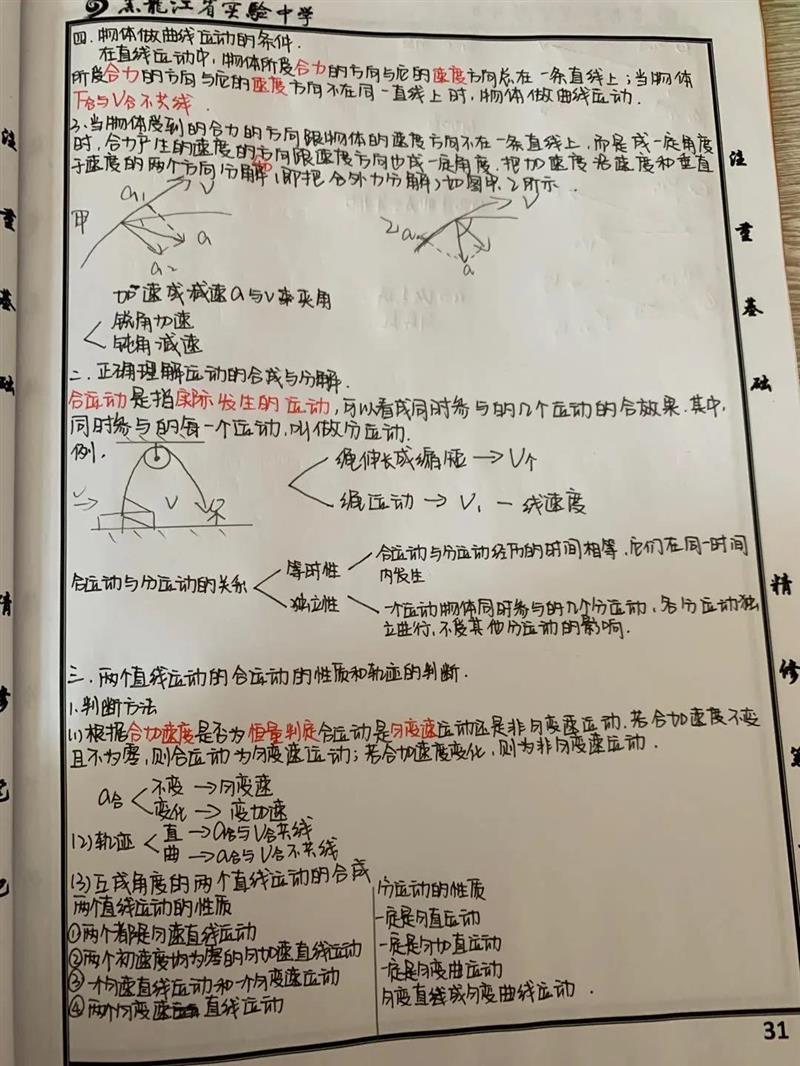 黑龙江省实验中学
四.物体做曲线运动的条件.
在直线运动中,物体所受合力的方向与它的速度方向总在一条直线上;当物体
所受合力的方向与它的速度方向不在同一直线上时,物体做曲线运动.
F合与V合不共线.
2.当物体受到的合力的方向跟物体的速度方向不在一条直线上,而是成一定角度
时,合力产生的速度的方向跟速度方向也成一定角度.把加速度沿速度和垂直
于速度的两个方向分解(即把合外力分解)如图甲、乙所示.
甲 a₁ V a a₂
乙 a V a
加速或减速a与v夹角
锐角加速
钝角减速
二.正确理解运动的合成与分解.
合运动是指实际发生的运动,可以看成同时参与的几个运动的合效果.其中,
同时参与的每一个运动,叫做分运动.
例.
绳伸长或缩短→V个
绳运动→V₁—线速度
v V
合运动与分运动的关系
等时性
合运动与分运动经历的时间相等.它们在同一时间
内发生
独立性
一个运动物体同时参与的几个分运动,各分运动独
立进行,不受其他分运动的影响.
三.两个直线运动的合运动的性质和轨迹的判断.
1.判断方法
(1)根据合加速度是否为恒量判定合运动是匀变速运动还是非匀变速运动.若合加速度不变
且不为零,则合运动为匀变速运动;若合加速度变化,则为非匀变速运动.
a合
不变→匀变速
变化→变加速
(2)轨迹
直→a合与V合共线
曲→a合与V合不共线
(3)互成角度的两个直线运动的合成
两个直线运动的性质
①两个都是匀速直线运动
②两个初速度均为零的匀加速直线运动
③一个匀速直线运动和一个匀变速运动
④两个匀变速直线运动
分运动的性质
一定是匀直运动
一定是匀加直运动
一定是匀变曲运动
匀变直线或匀变曲线运动.
31
注重基础
精修
注重基础
精修